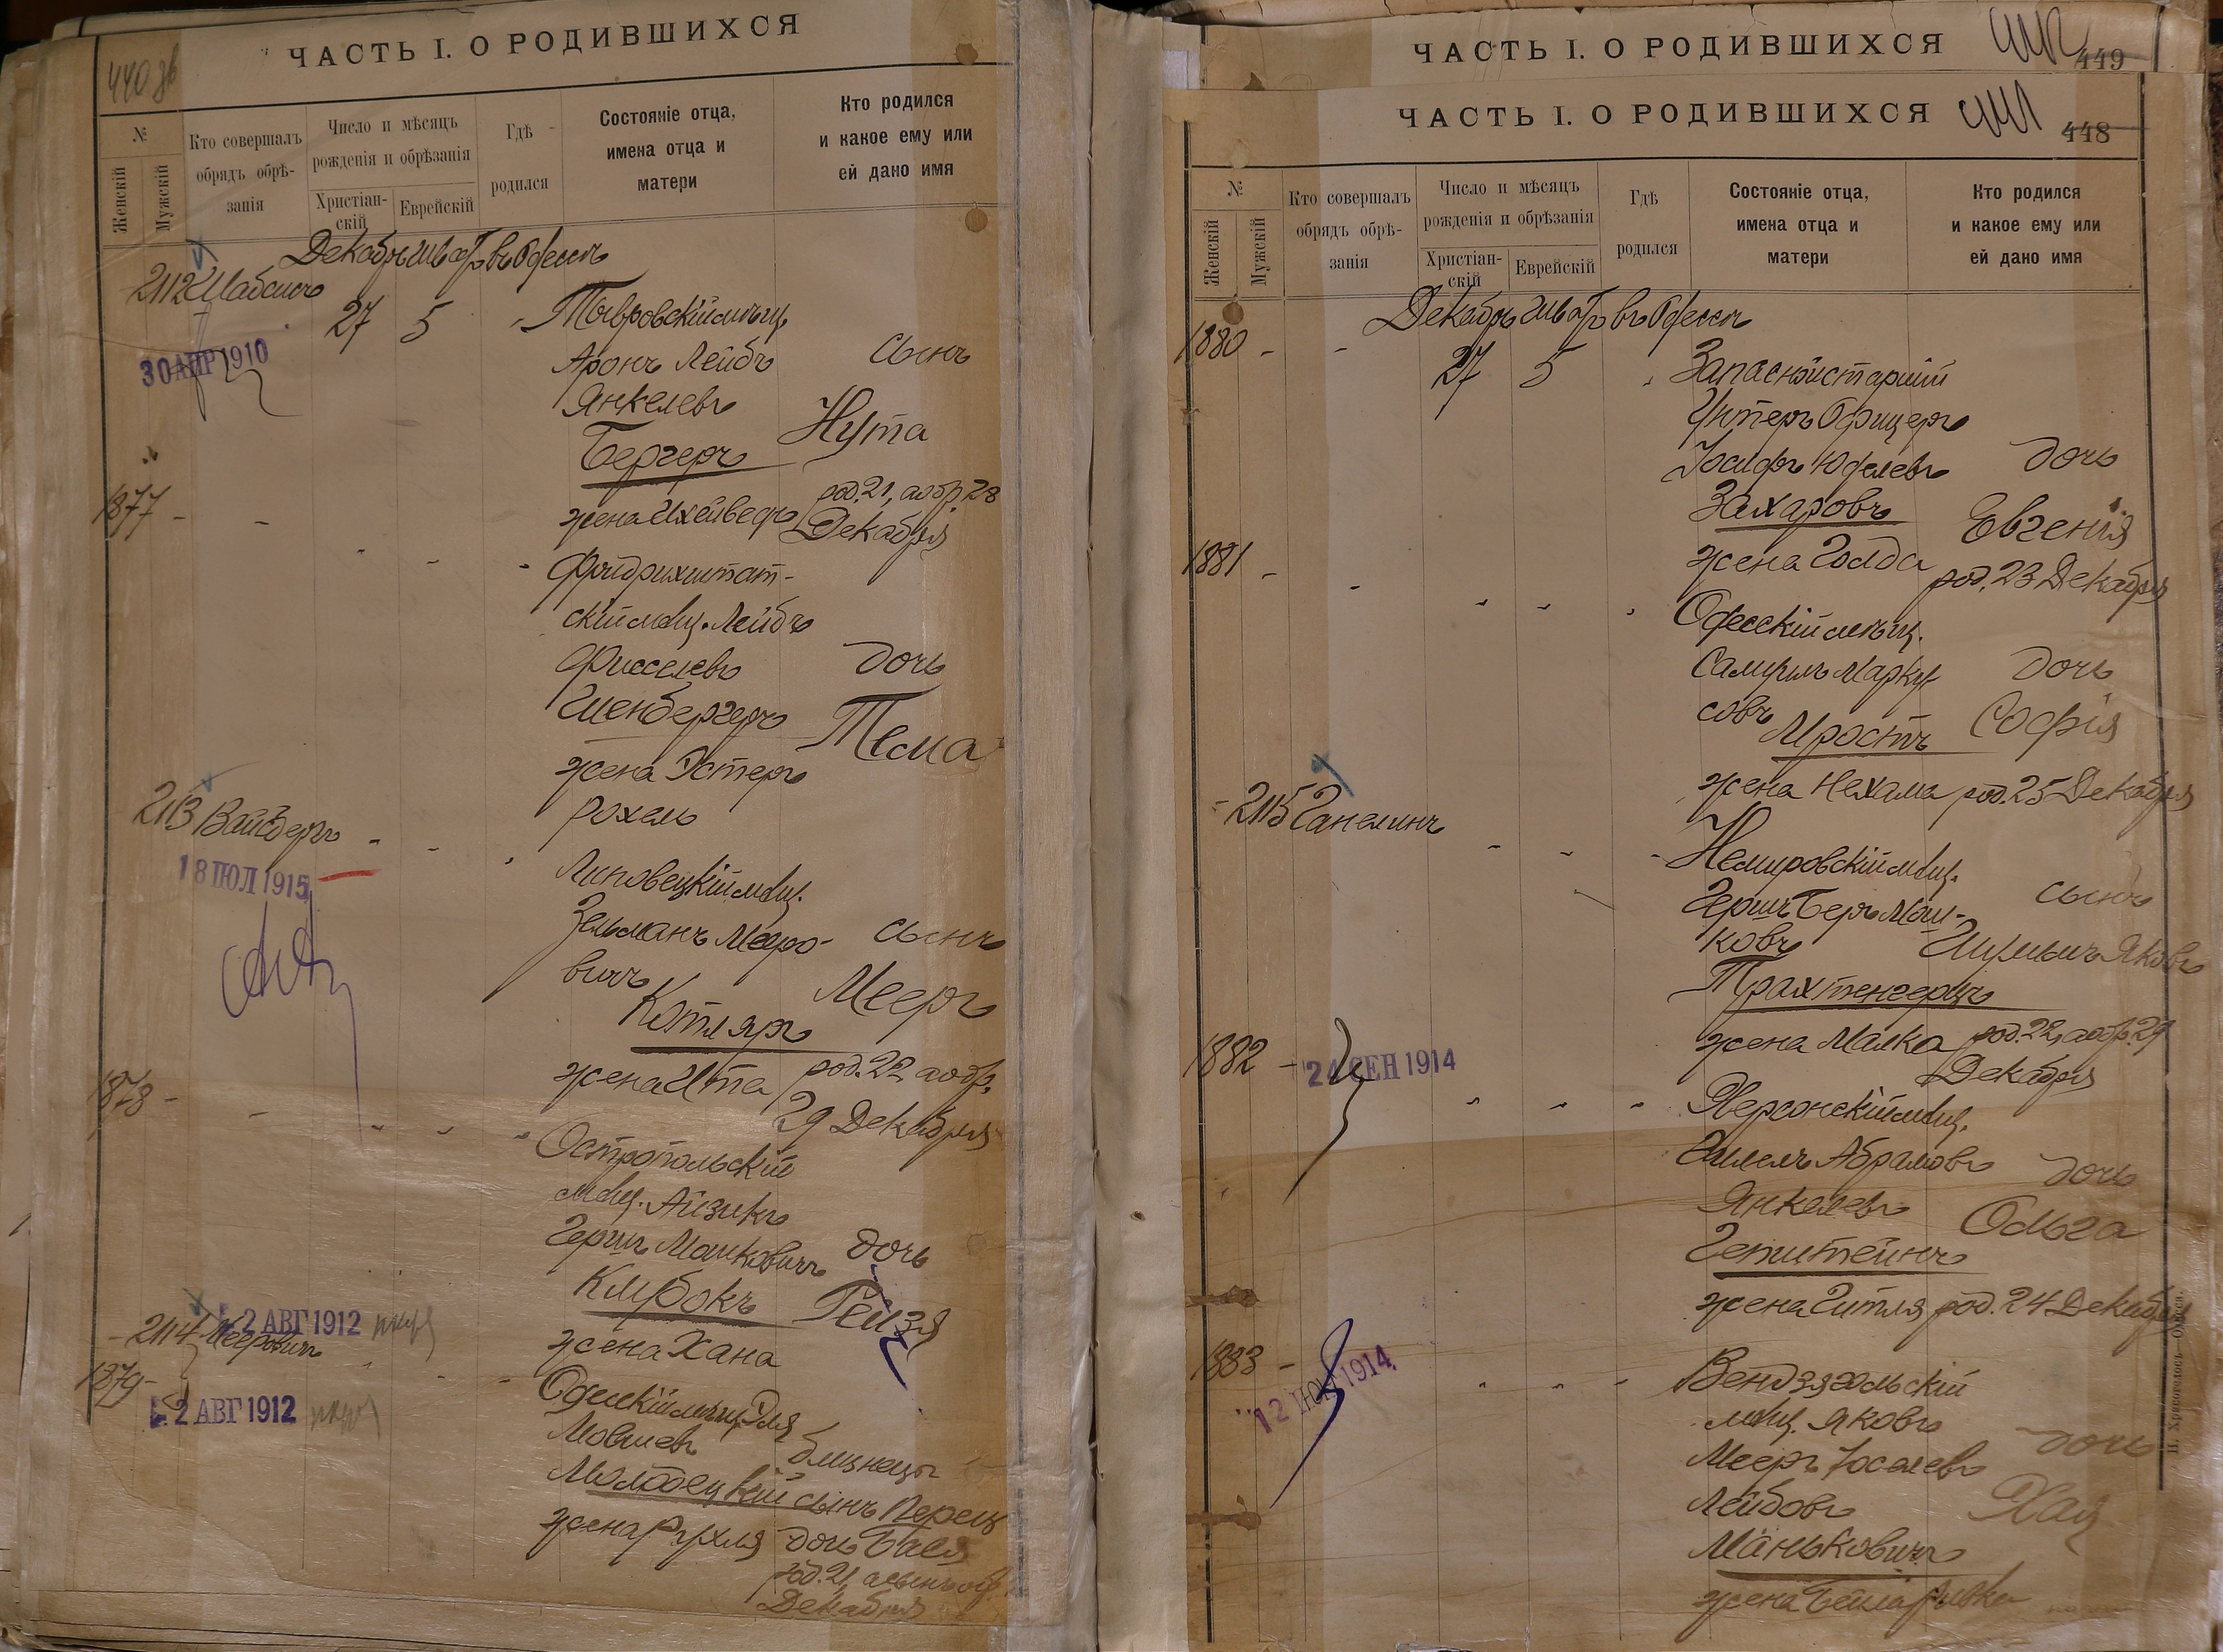 440 об
ЧАСТЬ I. О РОДИВШИХСЯ
№
Женскій
Мужскій
Кто совершалъ
обрядъ обрѣ-
занія
Число и мѣсяцъ
рожденія и обрѣзанія
Христіан-
скій
Еврейскій
Гдѣ
родился
Состояніе отца,
имена отца и
матери
Кто родился
и какое ему или
ей дано имя
въ Одессѣ
2112
27 5
Тывровскій мѣщ.
30 АПР 1910
Аронъ Лейбъ
сынъ
Янкелевъ
Нута
Бергеръ
род. 21, а обр. 28
жена
Декабря
1877
Фридрихштат-
скій мѣщ. Лейбъ
Фишелевъ
дочь
Тема
жена Эстеръ
Рохель
2113 Вайсбергъ
18 ІЮЛ 1915
Липовецкій мѣщ.
Зельманъ Мееро-
сынъ
вичъ
Мееръ
Котляръ
жена Ита
род. 22, а обр.
29 Декабря
1878
Остропольскій
мѣщ. Айзикъ
Гершъ Мошковичъ
дочь
Клубокъ
Рейзя
жена Хана
2 АВГ 1912
2114 Мееровичъ
1879
2 АВГ 1912
Одесскій мѣщ. Эля
Мовшевъ
близнецы
Молодецкій
сынъ Перецъ
жена Рухля
дочь Бася
род. 21, а сынъ обр.
Декабря
ЧАСТЬ I. О РОДИВШИХСЯ
449
ЧАСТЬ I. О РОДИВШИХСЯ
441
448
№
Женскій
Мужскій
Кто совершалъ
обрядъ обрѣ-
занія
Число и мѣсяцъ
рожденія и обрѣзанія
Христіан-
скій
Еврейскій
Гдѣ
родился
Состояніе отца,
имена отца и
матери
Кто родился
и какое ему или
ей дано имя
въ Одессѣ
1880
27 5
Запасной старшій
Унтеръ Офицеръ
Іосифъ Юделевъ
дочь
Захаровъ
Евгенія
жена Голда
род. 23 Декабря
1881
Одесскій мѣщ.
Самуилъ Марку-
дочь
совъ
Софія
Мростъ
жена Нехама
род. 25 Декабря
2115 Ганелинъ
Немировскій мѣщ.
сынъ
Гершъ Беръ Мош-
ковъ
Яковъ
Трахтенгерцъ
жена Малка
род. 22, а обр. 29
Декабря
1882
24 СЕН 1914
Херсонскій мѣщ.
Абрамовъ
дочь
Янкелевъ
Ольга
Гепштейнъ
жена Гитля
род. 24 Декабря
1883
12 1914
Вендзягольскій
мѣщ. Яковъ
дочь
Мееръ Іоселевъ
Лейбовъ
Хая
Маньковичъ
жена Бейла Рывка
П. Хрисогелосъ—Одесса.